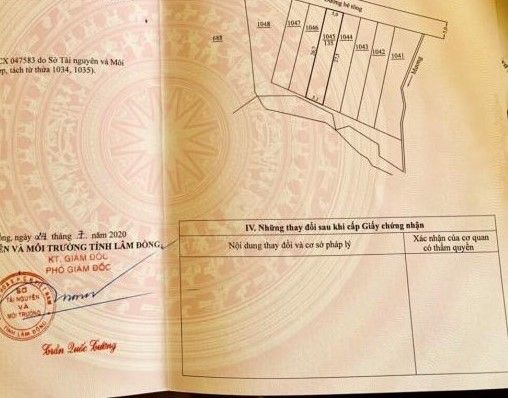 CX 047583 do Sở Tài nguyên và Môi
ợp, tách từ thửa 1034, 1035).
Đường bê tông
688
1048
1047
1046
1045
135
1044
1043
1042
1041
Mương
ồng, ngày 04 tháng 7. năm 2020
ÊN VÀ MÔI TRƯỜNG TỈNH LÂM ĐỒNG
KT. GIÁM ĐỐC
PHÓ GIÁM ĐỐC
SỞ
TÀI NGUYÊN
VÀ
MÔI TRƯỜNG
TỈNH LÂM ĐỒNG
Trần Quốc Cường
IV. Những thay đổi sau khi cấp Giấy chứng nhận
Nội dung thay đổi và cơ sở pháp lý
Xác nhận của cơ quan
có thẩm quyền